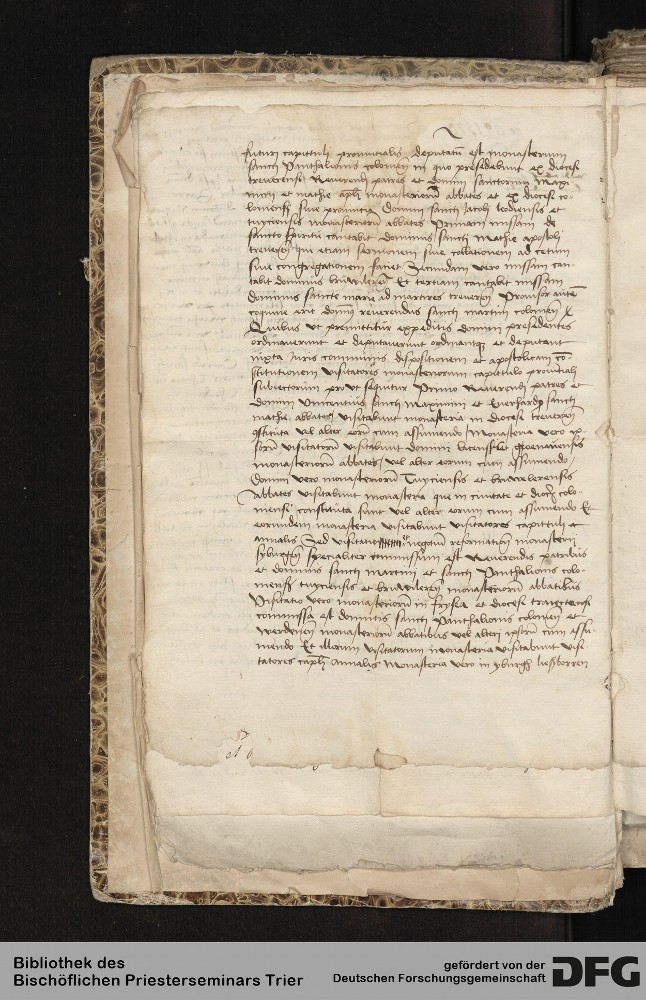 futuri capittuli provincialis deputatū est monasterium
sancti Panthalionis colonieñ in quo presidebunt ex diocesi
treverensi Reverendi patres et domini sanctorum Maxi
mini et mathie apłi monasteriorū abbates et ex diocesi co
lonieñ sive provincia domini sancti Jacobi leodiensis et
tuyciensis monasteriorū abbates Primam missam de
sancto spiritu cantabit dominus sancti Mathie apostoli
trevereñ qui etiam sermonem sive collationem ad cetum
sive congregationem faciet Secundam vero missam can
tabit dominus bruwilereñ Et tertiam cantabit missam
dominus sancte marie ad martires trevereñ Provisor autē
coquine erit domin9 reverendus sancti martini colonieñ
Quibus ut premittitur expeditis domini presidentes
ordinaverunt et deputaverunt ordinantque et deputant
iuxta Juris communis dispositionem et apostolicam cō
stitutionem visitatores monasteriorum capitulo provinciali
subiectorum prout sequitur Primo Reverendi patres et
domini Vincentius sancti Maximini et Everhardus sancti
mathie abbates visitabunt monasteria in diocesi trevereñ
9stituta vel alter eorū cum assumendo Monasteria vero ip
sorū visitatorū visitabunt domini lacensis et gronawensis
monasteriorū abbates vel alter eorum cum assumendo
Domini vero monasteriorū Tuyciensis et bruwilerensis
Abbates visitabunt monasteria que in civitate et dioc̄ colo
niensi constituta sunt vel alter eorum cum assumendo Et
eorundem monasteria visitabunt visitatores capittuli
annalis Sed visitatio et negotiū reformationis monasterii
syburgeñ specialiter commissum est Reverendis patribus
et dominis sancti martini et sancti Panthalionis colo
nieñ tuyciensis et bruwilereñ monasteriorū abbatibus
Visitatio vero monasteriorū in frysia et diocesi traiectensi
commissa est dominis sancti Panthalionis colonieñ et
werdineñ monasteriorū abbatibus vel alteri ipsorū cum assu
mendo Et illorum visitatorum monasteria visitabunt visi
tatores capłi Annalis Monasteria vero in yburgh liesborren
Bibliothek des
Bischöflichen Priesterseminars Trier
gefördert von der
Deutschen Forschungsgemeinschaft
DFG